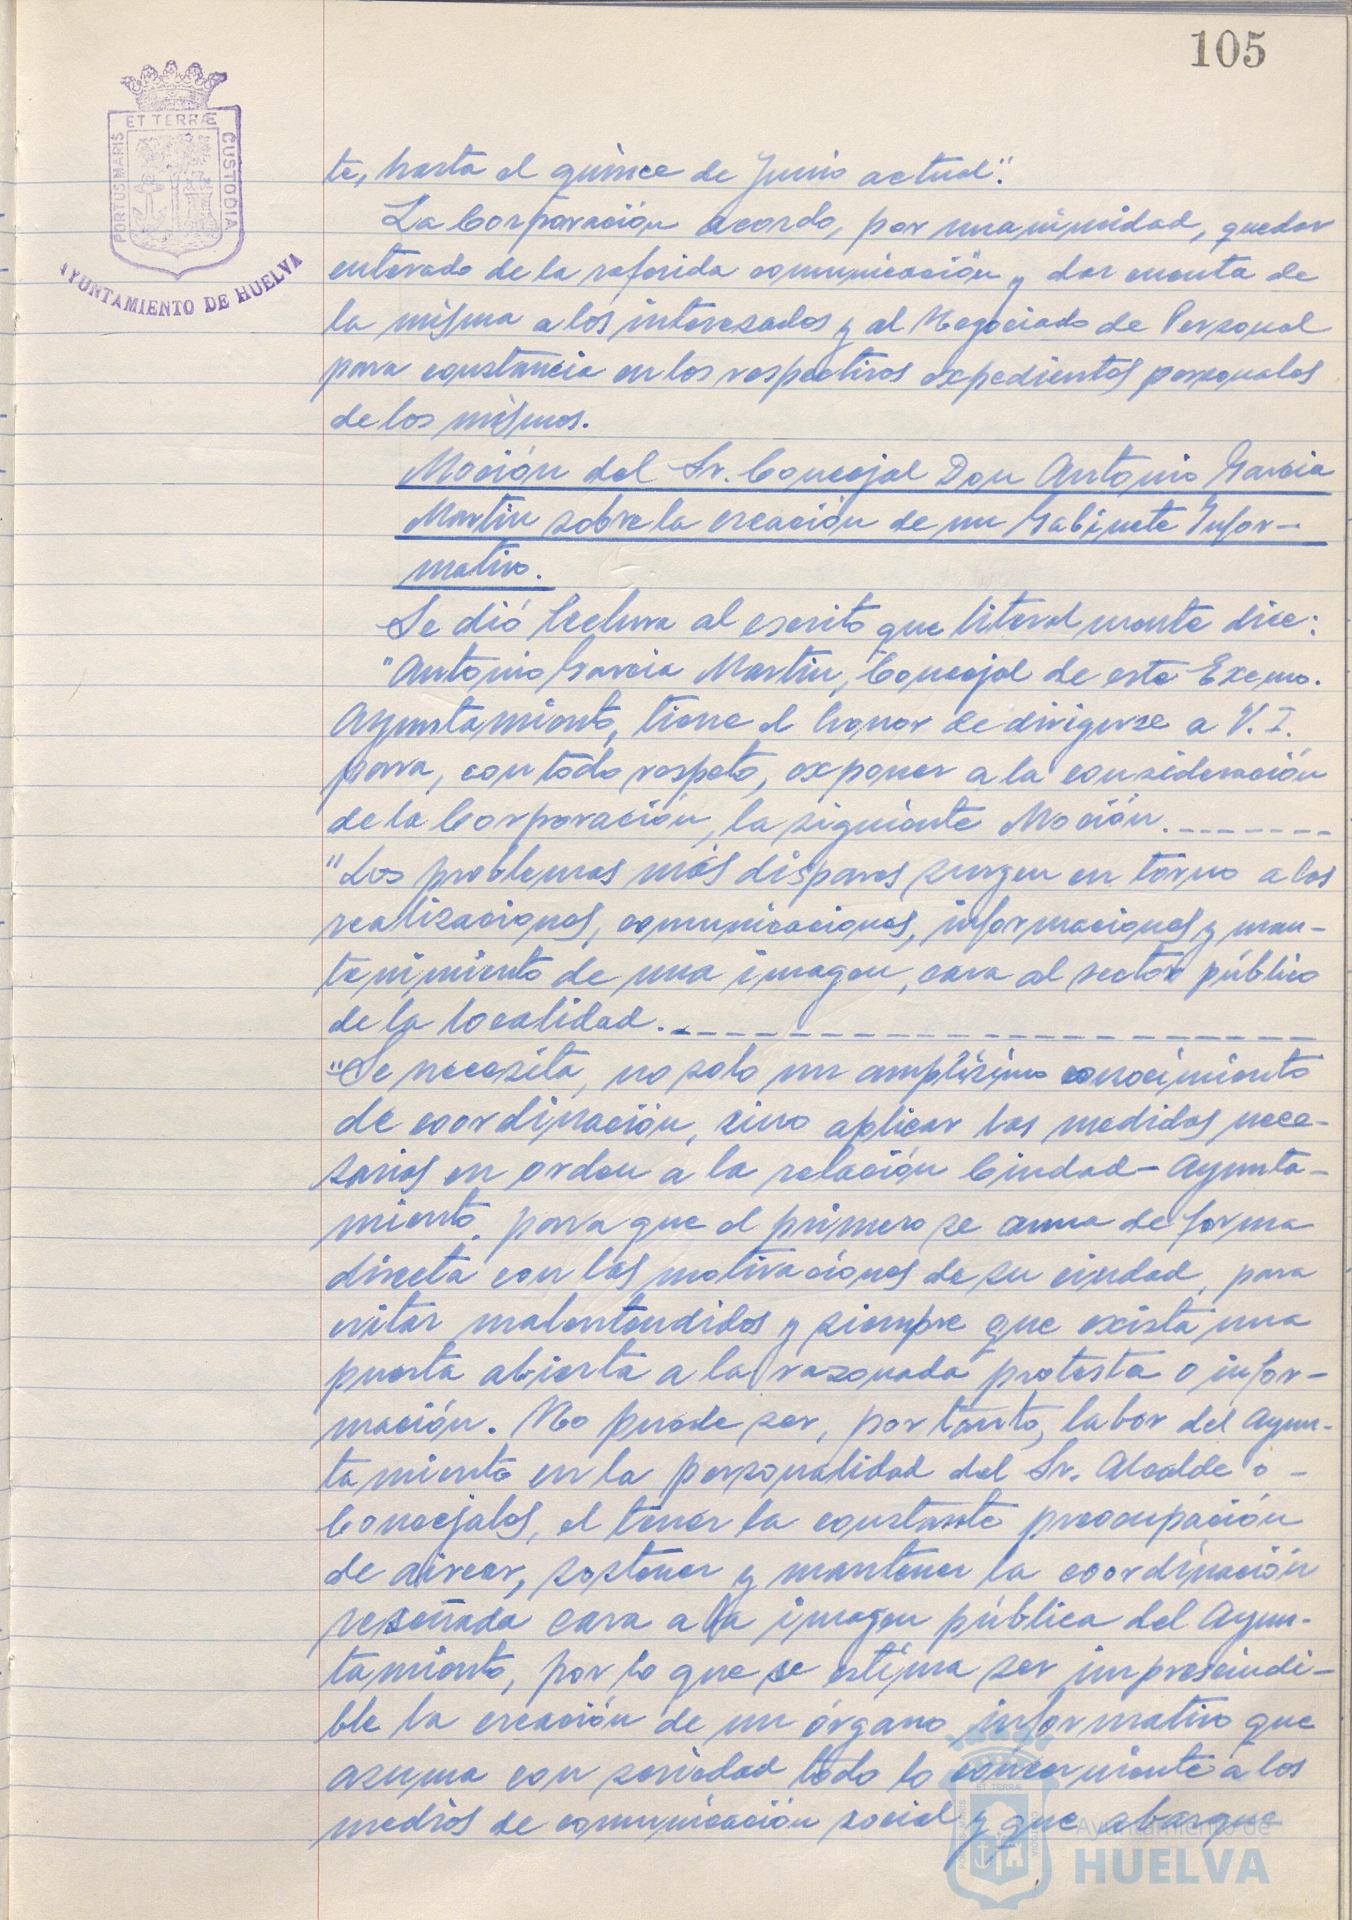 105
ET TERRÆ
PORTUS MARIS
CUSTODIA
AYUNTAMIENTO DE HUELVA
te, hasta el quince de Junio actual".
La Corporación acordó, por unanimidad, quedar
enterado de la referida comunicación y dar cuenta de
la misma a los interesados y al Negociado de Personal
para constancia en los respectivos expedientes personales
de los mismos.
Moción del Sr. Concejal Don Antonio Garcia
Martin sobre la creación de un Gabinete Infor-
mativo.
Se dió lectura al escrito que literalmente dice:
"Antonio Garcia Martin, Concejal de este Excmo.
Ayuntamiento, tiene el honor de dirigirse a V. I.
para, con todo respeto, exponer a la consideración
de la Corporación, la siguiente Moción.
"Los problemas más dispares surgen en torno a las
realizaciones, comunicaciones, informaciones y man-
tenimiento de una imagen, cara al sector público
de la localidad.
"Se necesita, no solo un amplísimo conocimiento
de coordinación, sino aplicar las medidas nece-
sarias en orden a la relación Ciudad-Ayunta-
miento, para que el primero se una de forma
directa con las motivaciones de su ciudad, para
evitar malentendidos y siempre que exista una
puerta abierta a la razonada protesta o infor-
mación. No puede ser, por tanto, labor del Ayun-
tamiento en la personalidad del Sr. Alcalde o -
Concejales, el tener la constante preocupación
de airear, sostener y mantener la coordinación
reseñada cara a la imagen pública del Ayun-
tamiento, por lo que se estima ser imprescindi-
ble la creación de un órgano informativo que
asuma con seriedad todo lo concerniente a los
medios de comunicación social y que abarque
Ayuntamiento de
HUELVA